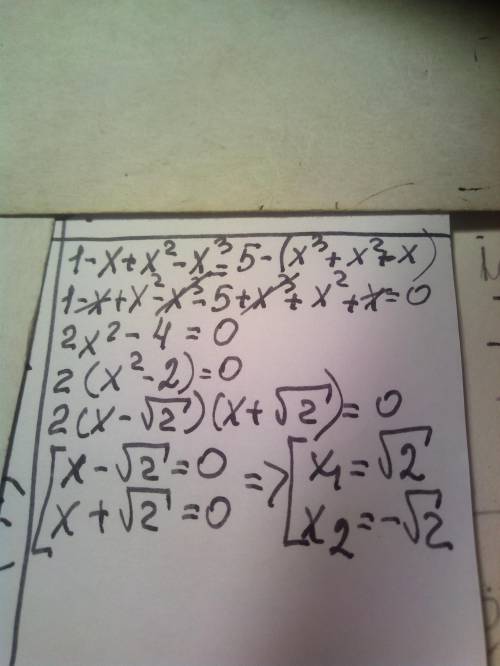 1-x+x²-x³=5-(x³+x²+x)
1-x+x²-x³-5+x³+x²+x=0
2x²-4=0
2(x²-2)=0
2(x-√2)(x+√2)=0
[x-√2=0 => [x₁=√2
x+√2=0 x₂=-√2